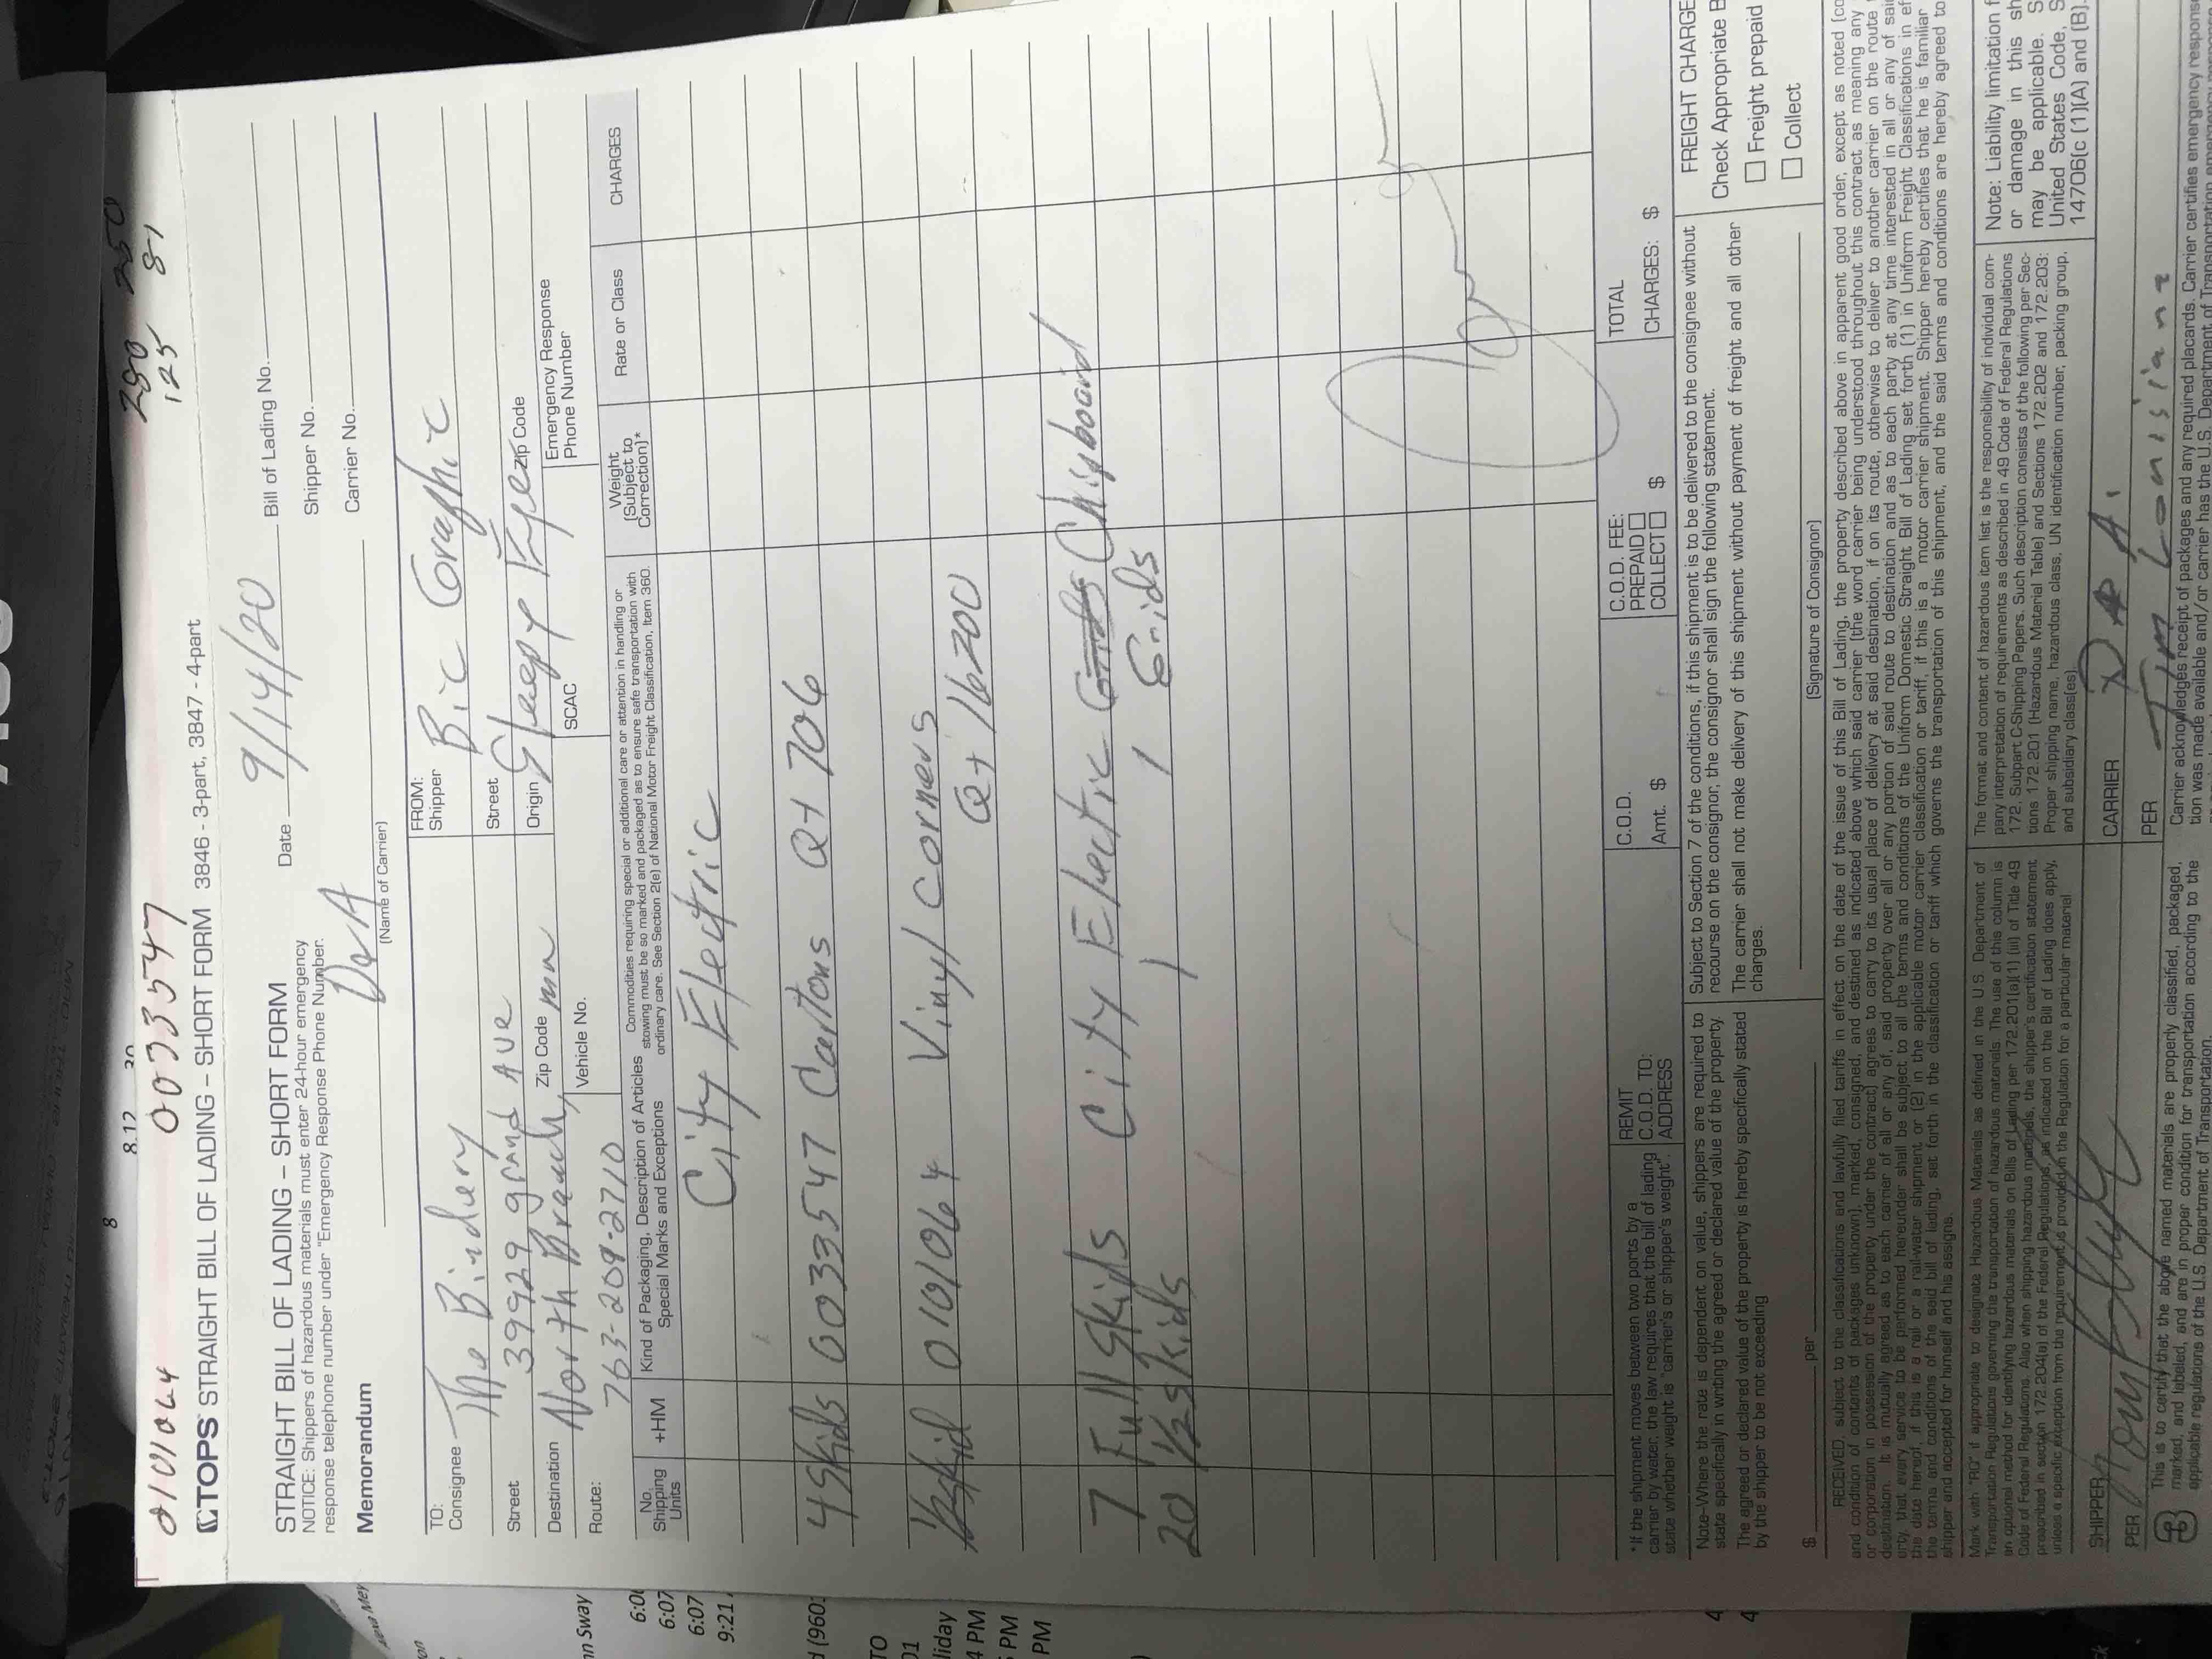 0101064
8.12 20
8
0033547
250 250
125 81
TOPS STRAIGHT BILL OF LADING – SHORT FORM 3846 - 3-part, 3847 - 4-part
STRAIGHT BILL OF LADING – SHORT FORM
NOTICE: Shippers of hazardous materials must enter 24-hour emergency
response telephone number under "Emergency Response Phone Number."
Memorandum
D&A
(Name of Carrier)
Date 9/14/20
Bill of Lading No.
Shipper No.
Carrier No.
TO:
Consignee The Bindery
Street 39929 grand AVE
Destination North Branch, mn Zip Code
Route: 763-209-2710 Vehicle No.
FROM:
Shipper Bic Graphic
Street
Origin Sleepy Eye Zip Code
SCAC
Emergency Response
Phone Number
No.
Shipping
Units
+HM
Kind of Packaging, Description of Articles
Special Marks and Exceptions
Commodities requiring special or additional care or attention in handling or
stowing must be so marked and packaged as to ensure safe transportation with
ordinary care. See Section 2(e) of National Motor Freight Classification, Item 360.
Weight
(Subject to
Correction)*
Rate or Class
CHARGES
City Electric
4 Skids 0033547 Cartons Qt 706
1/2 skid 0101064 Vinyl Corners
Qt 16200
7 Full Skids City Electric Chipboard
20 1/2 skids Grids
REMIT
C.O.D. TO:
ADDRESS
C.O.D.
Amt. $
C.O.D. FEE:
PREPAID
COLLECT $
TOTAL
CHARGES: $
*If the shipment moves between two ports by a
carrier by water, the law requires that the bill of lading
state whether weight is "carrier's or shipper's weight".
Note-Where the rate is dependent on value, shippers are required to
state specifically in writing the agreed or declared value of the property.
The agreed or declared value of the property is hereby specifically stated
by the shipper to be not exceeding
$ per
Subject to Section 7 of the conditions, if this shipment is to be delivered to the consignee without
recourse on the consignor, the consignor shall sign the following statement.
The carrier shall not make delivery of this shipment without payment of freight and all other
charges.
(Signature of Consignor)
FREIGHT CHARGE
Check Appropriate B
Freight prepaid
Collect
RECEIVED, subject to the classifications and lawfully filed tariffs in effect on the date of the issue of this Bill of Lading, the property described above in apparent good order, except as noted (co
and condition of contents of packages unknown), marked, consigned, and destined as indicated above which said carrier (the word carrier being understood throughout this contract as meaning any
or corporation in possession of the property under the contract) agrees to carry to its usual place of delivery at said destination, if on its route, otherwise to deliver to another carrier on the route
destination. It is mutually agreed as to each carrier of all or any of, said property over all or any portion of said route to destination and as to each party at any time interested in all or any of said
erty, that every service to be performed hereunder shall be subject to all the terms and conditions of the Uniform Domestic Straight Bill of Lading set forth (1) in Uniform Freight Classifications in ef
the date hereof, if this is a rail or a rail-water shipment or (2) in the applicable motor carrier classification or tariff, if this is a motor carrier shipment. Shipper hereby certifies that he is familiar
the terms and conditions of the said bill of lading, set forth in the classification or tariff which governs the transportation of this shipment, and the said terms and conditions are hereby agreed to
shipper and accepted for himself and his assigns.
Mark with "RQ" if appropriate to designate Hazardous Materials as defined in the U.S. Department of
Transportation Regulations governing the transportation of hazardous materials. The use of this column is
an optional method for identifying hazardous materials on Bills of Lading per 172.201(a)(1) (iii) of Title 49
Code of Federal Regulations. Also when shipping hazardous materials, the shipper's certification statement
prescribed in section 172.204(a) of the Federal Regulations, as indicated on the Bill of Lading does apply,
unless a specific exception from the requirement is provided in the Regulation for a particular material
The format and content of hazardous item list is the responsibility of individual com-
pany interpretation of requirements as described in 49 Code of Federal Regulations
172. Subpart C-Shipping Papers. Such description consists of the following per Sec-
tions 172.201 (Hazardous Material Table) and Sections 172.202 and 172.203:
Proper shipping name, hazardous class, UN identification number, packing group,
and subsidiary class(es).
Note: Liability limitation f
or damage in this sh
may be applicable. S
United States Code, S
14706(c (1)(A) and (B).
SHIPPER
PER
CARRIER D&A
PER Tim Lonsiane
This is to certify that the above named materials are properly classified, packaged,
marked, and labeled, and are in proper condition for transportation according to the
applicable regulations of the U.S. Department of Transportation.
Carrier acknowledges receipt of packages and any required placards. Carrier certifies emergency respons
tion was made available and/or carrier has the U.S. Department of Transportation emergency response
Alexa Mey
nn Sway
6:07
6:07
9:21
d (960:
TO
liday
4 PM
PM
PM